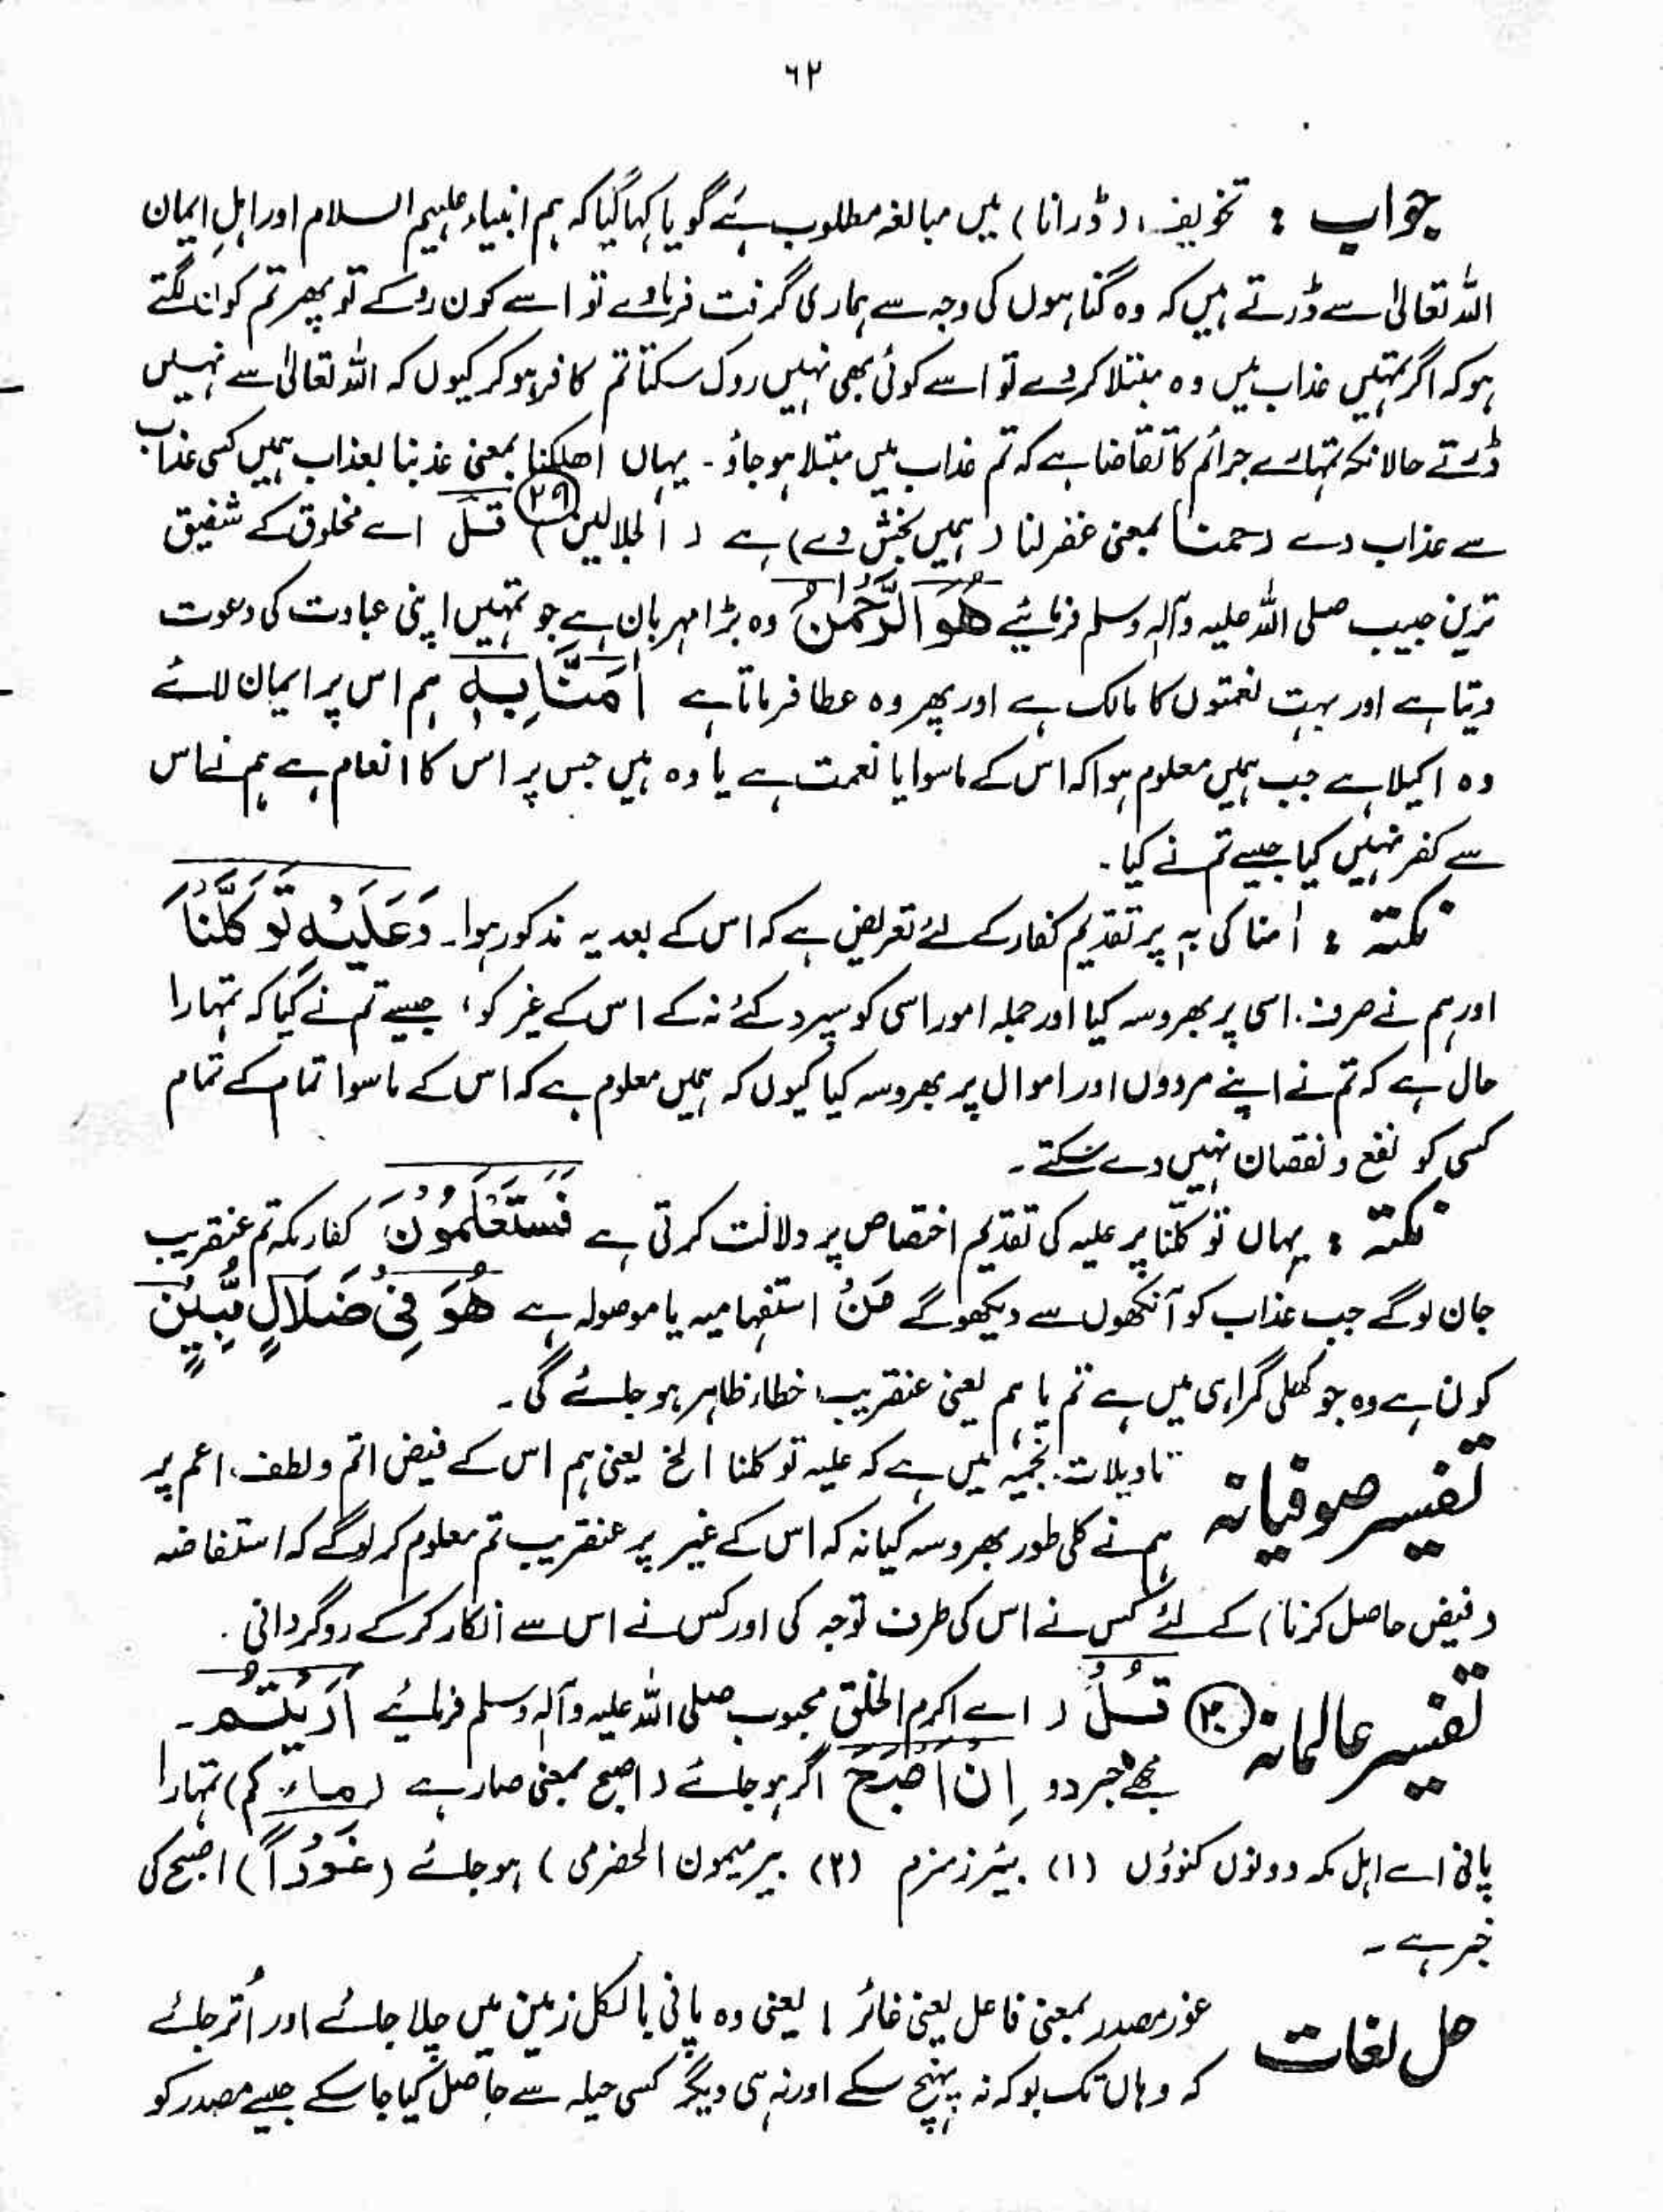 ۶۲
جواب : تخویف (ڈرانا) میں مبالغہ مطلوب ہے گویا کہا گیا کہ ہم انبیاء علیہم السلام اور اہلِ ایمان
اللہ تعالیٰ سے ڈرتے ہیں کہ وہ گناہوں کی وجہ سے ہماری گرفت فرماوے تو اسے کون روکے تو پھر تم کون لگتے
ہو کہ اگر تمہیں عذاب میں وہ مبتلا کر دے تو اسے کوئی بھی نہیں روک سکتا تم کافر ہو کر کیوں کہ اللہ تعالیٰ سے نہیں
ڈرتے حالانکہ تمہارے جرائم کا تقاضا ہے کہ تم عذاب میں مبتلا ہو جاؤ ۔ یہاں اھلکنا بمعنی عذبنا بعذاب ہمیں کسی عذاب
سے عذاب دے رحمنا بمعنی غفرلنا (ہمیں بخش دے) ہے (الجلالین) ۲۹ قُلْ اے مخلوق کے شفیق
ترین حبیب صلی اللہ علیہ وآلہ وسلم فرمائیے هُوَ الرَّحْمٰنُ وہ بڑا مہربان ہے جو تمہیں اپنی عبادت کی دعوت
دیتا ہے اور بہت نعمتوں کا مالک ہے اور پھر وہ عطا فرماتا ہے اٰمَنَّا بِهٖ ہم اس پر ایمان لائے
وہ اکیلا ہے جب ہمیں معلوم ہوا کہ اس کے ماسوا یا نعمت ہے یا وہ ہیں جس پر اس کا انعام ہے ہم نے اس
سے کفر نہیں کیا جیسے تم نے کیا ۔
نکتہ : اٰمنا کی بہ پر تقدیم کفار کے لئے تعریض ہے کہ اس کے بعد یہ مذکور ہوا ۔ وَعَلَیْهِ تَوَکَّلْنَا
اور ہم نے صرف اسی پر بھروسہ کیا اور جملہ امور اسی کو سپرد کئے نہ کے اس کے غیر کو، جیسے تم نے کیا کہ تمہارا
حال ہے کہ تم نے اپنے مردوں اور اموال پر بھروسہ کیا کیوں کہ ہمیں معلوم ہے کہ اس کے ماسوا تمام کے تمام
کسی کو نفع و نقصان نہیں دے سکتے ۔
نکتہ : یہاں توکلنا پر علیہ کی تقدیم اختصاص پر دلالت کرتی ہے فَسَتَعْلَمُوْنَ کفار مکہ تم عنقریب
جان لوگے جب عذاب کو آنکھوں سے دیکھو گے مَنْ استفہامیہ یا موصولہ ہے هُوَ فِیْ ضَلَالٍ مُّبِیْنٍ
کون ہے وہ جو کھلی گمراہی میں ہے تم یا ہم یعنی عنقریب خطاء ظاہر ہو جائے گی ۔
تفسیر صوفیانہ تاویلات نجمیہ میں ہے کہ علیہ توکلنا الخ یعنی ہم اس کے فیض اتم و لطف اعم پر
ہم نے کلی طور بھروسہ کیا نہ کہ اس کے غیر پر عنقریب تم معلوم کر لوگے کہ استفاضہ
(فیض حاصل کرنا) کے لئے کس نے اس کی طرف توجہ کی اور کس نے اس سے انکار کر کے روگردانی ۔
تفسیر عالمانہ ۳۰ قُلْ (اے اکرم الخلق محبوب صلی اللہ علیہ وآلہ وسلم فرمائیے اَرَءَیْتُمْ ۔
مجھے خبر دو اِنْ اَصْبَحَ اگر ہو جائے (اصبح بمعنی صار ہے (ماء کم) تمہارا
پانی اے اہل مکہ دونوں کنوؤں (۱) بیئر زمزم (۲) بیر میمون الحضرمی) ہو جائے (غَوْراً) اصبح کی
خبر ہے ۔
حل لغات غور مصدر بمعنی فاعل یعنی غائر ! یعنی وہ پانی بالکل زمین میں چلا جائے اور اُتر جائے
کہ وہاں تک بوکہ نہ پہنچ سکے اور نہ ہی دیگر کسی حیلہ سے حاصل کیا جا سکے جیسے مصدر کو